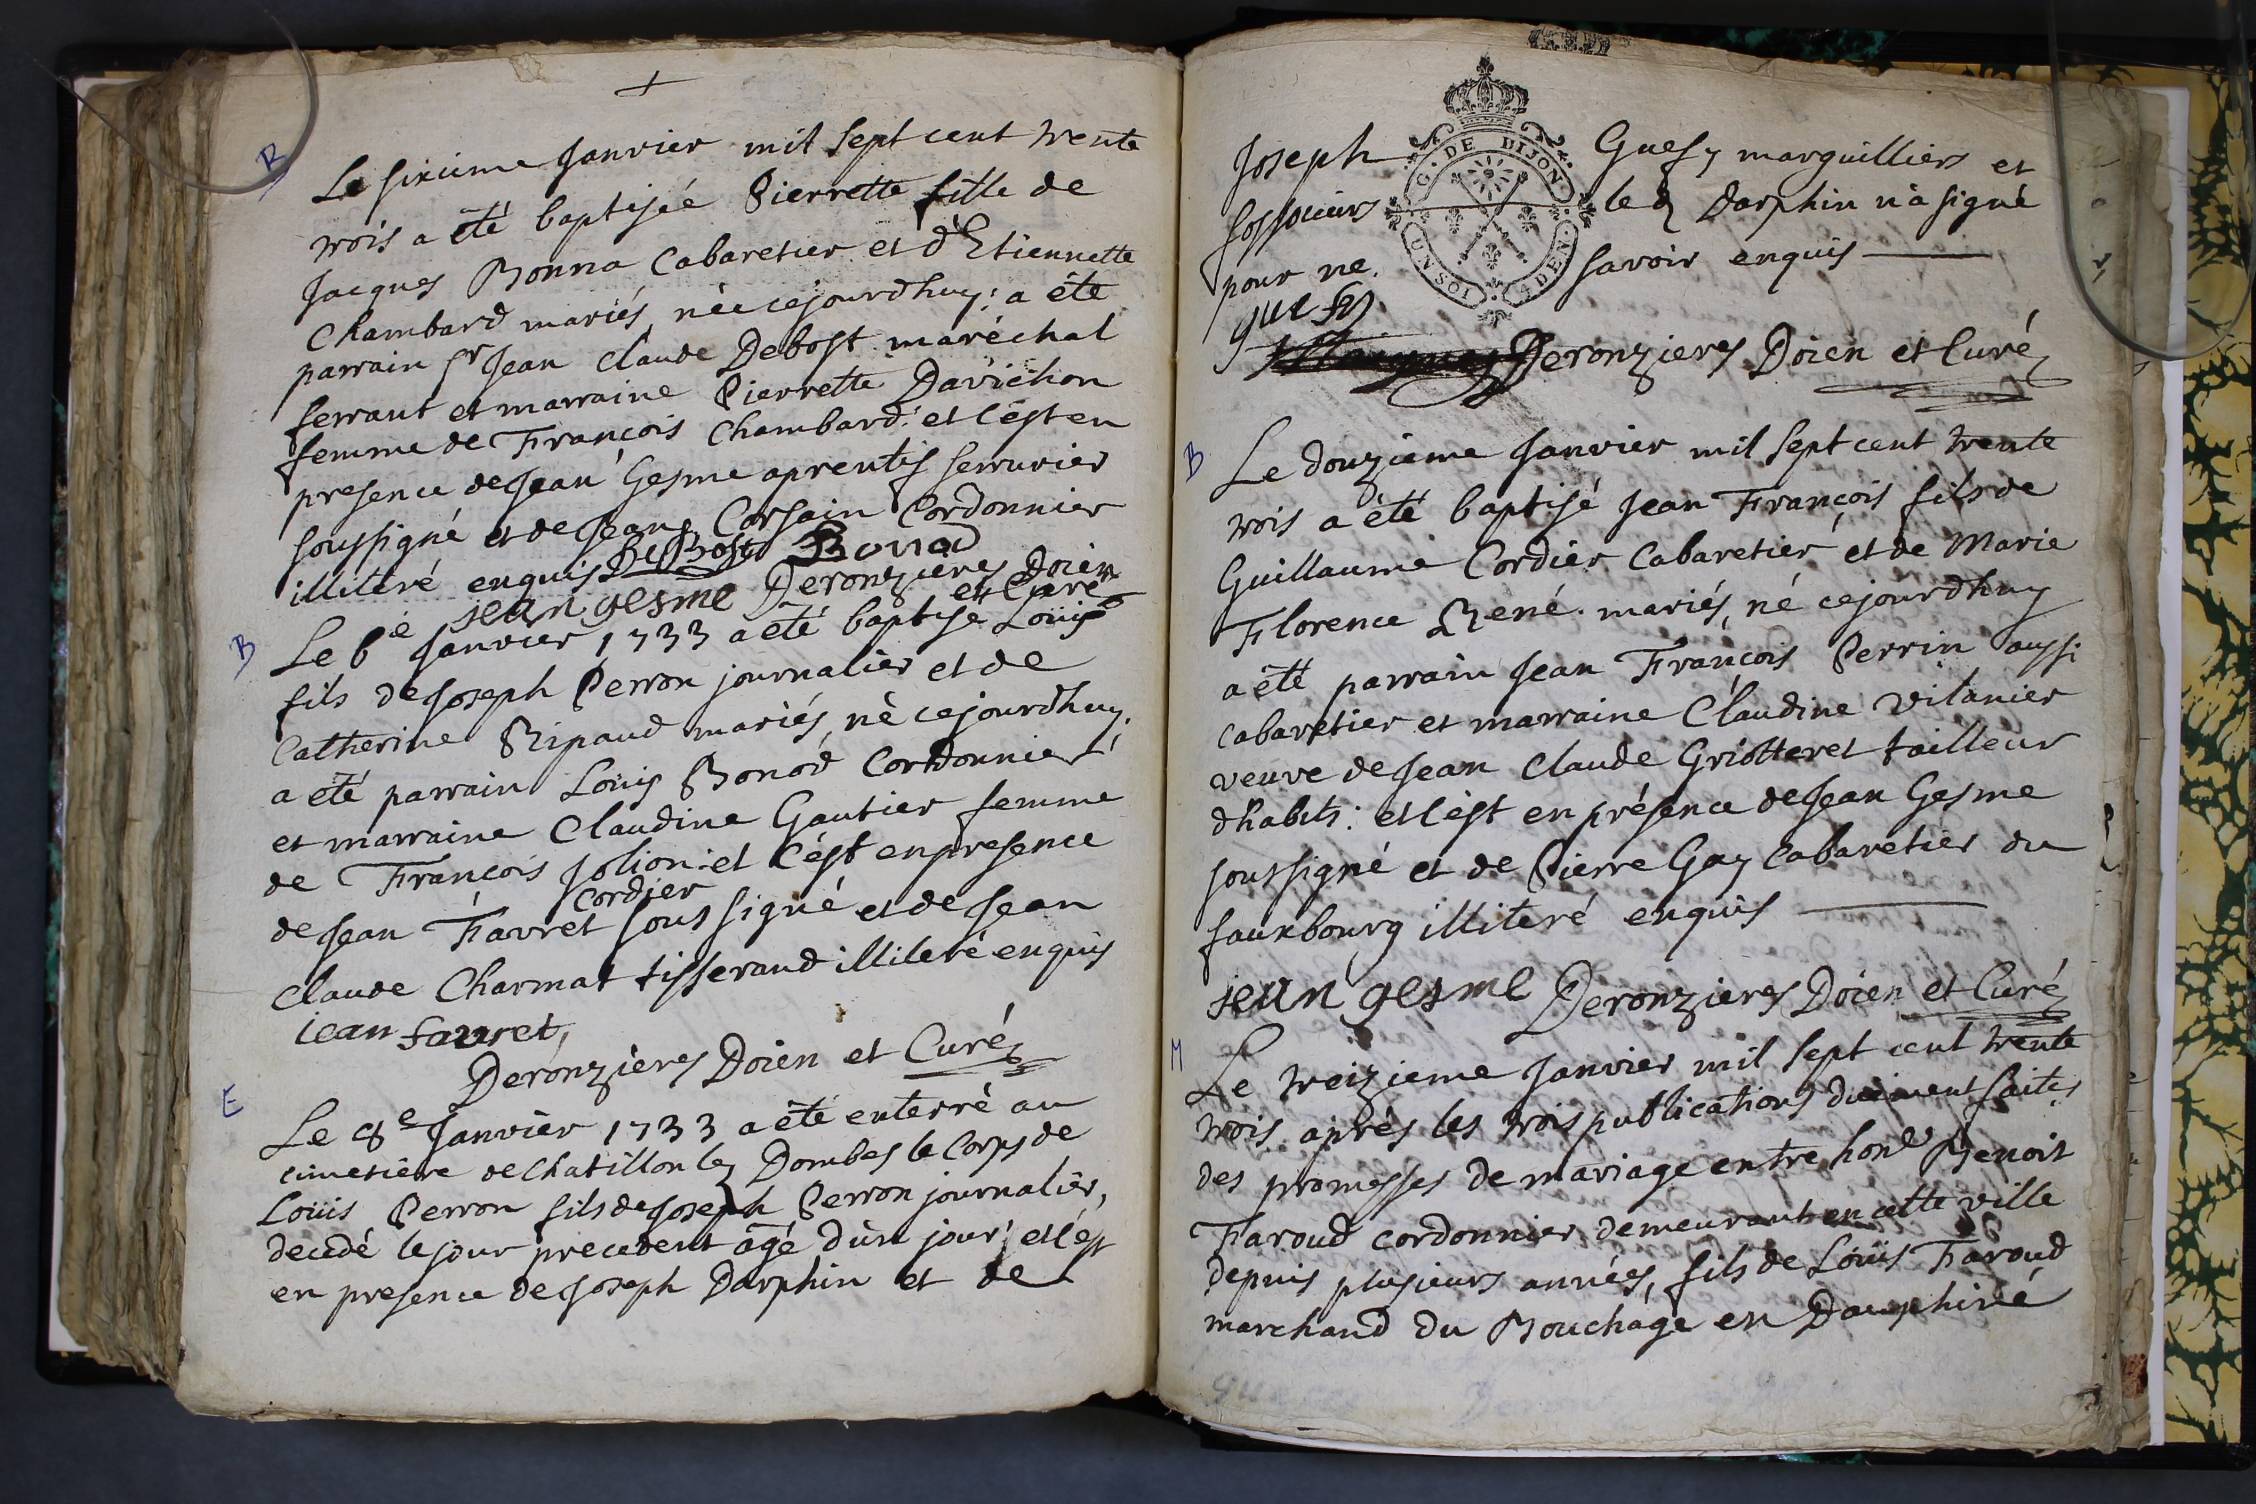 B
Le sixieme Janvier mil sept cent trente
trois a été baptiseé Pierrette fille de
Jacques Bonna Cabaretier et d'Etiennette
Chambard mariés née cejourdhuy: a été
parrain Sr Jean Claude Debost maréchal
ferrant et marraine Pierrette Davichon
femme de François Chambard: et c'est en
presence de Jean Gesme aprentif serrurier
soussigné et de Jean Corsain Cordonnier
illiteré enquis DeBost Bona
jean gesme Deronzieres Doien
et Curé
B
Le 6e Janvier 1733 a été baptisé Loüis
fils de Joseph Perron journalier et de
Catherine Ripaud mariés, né cejourdhuy.
a été parrain Loüis Bonod Cordonnier
et marraine Claudine Gautier femme
de François Jolion: et c'est en presence
Cordier
de Jean Favret soussigné et de Jean
Claude Charmat tisserand illiteré enquis
jean favret
Deronzieres Doien et Curé
E
Le 8e Janvier 1733 a été enterré au
cimetiere de Chatillon lez Dombes le Corps de
Loüis Perron fils de Joseph Perron journalier,
decedé le jour precedent âgé d'un jour: et c'est
en presence de Joseph Darphin et de
G. DE DIJON
UN SOL
4 DEN
Joseph Guesy marguilliers et
fossoieurs le d Darphin n'a signé
pour ne savoir enquis
guesy
Deronzieres Doien et Curé
B
Le douzieme Janvier mil sept cent trente
trois a été baptisé Jean François fils de
Guillaume Cordier Cabaretier et de Marie
Florence René mariés, né cejourdhuy
a été parrain Jean François Perrin aussi
cabaretier et marraine Claudine Vitanier
veuve de Jean Claude Griotteret tailleur
d'habits: et c'est en présence de Jean Gesme
soussigné et de Pierre Gay Cabaretier du
fauxbourg illiteré enquis
jean gesme Deronzieres Doien et Curé
M
Le treizieme Janvier mil sept cent trente
trois aprés les trois publications duëment faites
des promesses de mariage entre hon.le Benoit
Faroud cordonnier demeurant en cette ville
depuis plusieurs années, fils de Loüis Faroud
marchand du Bouchage en Dauphiné